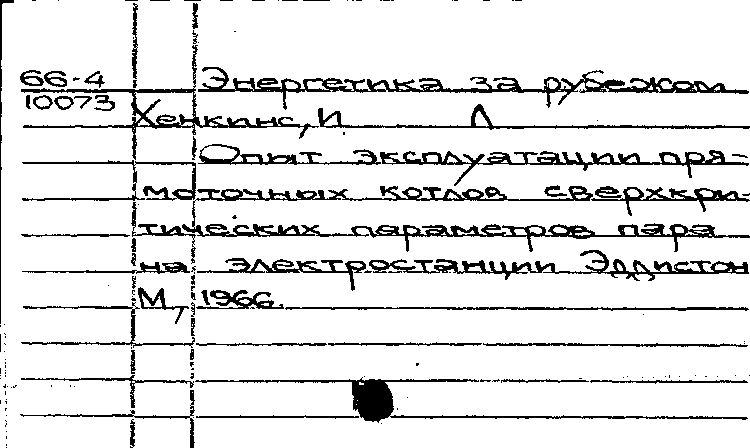 66-4 Энергетика за рубежом
10073
Хенкинс, И Л
Опыт эксплуатации пря-
моточных котлов сверхкри-
тических параметров пара
на электростанции Эддистон
М, 1966.